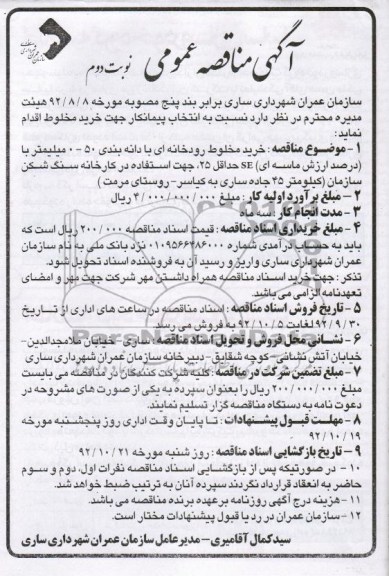 آگهی مناقصه عمومی نوبت دوم
سازمان عمران شهرداری ساری برابر بند پنج مصوبه مورخه ۹۲/۸/۸ هیئت
مدیره محترم در نظر دارد نسبت به انتخاب پیمانکار جهت خرید مخلوط اقدام
نماید:
۱- موضوع مناقصه : خرید مخلوط رودخانه ای با دانه بندی ۵۰ - ۰ میلیمتر با
(درصد ارزش ماسه ای) SE حداقل ۲۵، جهت استفاده در کارخانه سنگ شکن
سازمان (کیلومتر ۴۵ جاده ساری به کیاسر-روستای مرمت )
۲- مبلغ برآورد اولیه کار : مبلغ ۴/۰۰۰/۰۰۰/۰۰۰ ریال
۳- مدت انجام کار : سه ماه
۴- مبلغ خریداری اسناد مناقصه : قیمت اسناد مناقصه ۲۰۰/۰۰۰ ریال است که
باید به حساب درآمدی شماره ۰۱۰۹۵۶۶۷۸۶۰۰۰ نزد بانک ملی به نام سازمان
عمران شهرداری ساری واریز و رسید آن به فروشنده اسناد تحویل شود.
تذکر : جهت خرید اسناد مناقصه همراه داشتن مهر شرکت جهت مهر و امضای
تعهدنامه الزامی می باشد.
۵- تاریخ فروش اسناد مناقصه : اسناد مناقصه در ساعت های اداری از تاریخ
۹۲/۹/۳۰ لغایت ۹۲/۱۰/۵ به فروش می رسد.
۶- نشانی محل فروش و تحویل اسناد مناقصه: ساری- خیابان ملامجدالدین-
خیابان آتش نشانی- کوچه شقایق - دبیرخانه سازمان عمران شهرداری ساری
۷- مبلغ تضمین شرکت در مناقصه : کلیه شرکت کنندگان در مناقصه می بایست
مبلغ ۲۰۰/۰۰۰/۰۰۰ ریال را بعنوان سپرده به یکی از صورت های مشروحه در
دعوت نامه به دستگاه مناقصه گزار تسلیم نمایند.
۸- مهلت قبول پیشنهادات : تا پایان وقت اداری روز پنجشنبه مورخه
۹۲/۱۰/۱۹
۹- تاریخ بازگشایی اسناد مناقصه : روز شنبه مورخه ۹۲/۱۰/۲۱
۱۰- در صورتیکه پس از بازگشایی اسناد مناقصه نفرات اول، دوم و سوم
حاضر به انعقاد قرارداد نگردند سپرده آنان به ترتیب ضبط خواهد شد.
۱۱- هزینه درج آگهی روزنامه بر عهده برنده مناقصه می باشد.
۱۲- سازمان عمران در رد یا قبول پیشنهادات مختار است.
سید کمال آقامیری - مدیر عامل سازمان عمران شهرداری ساری